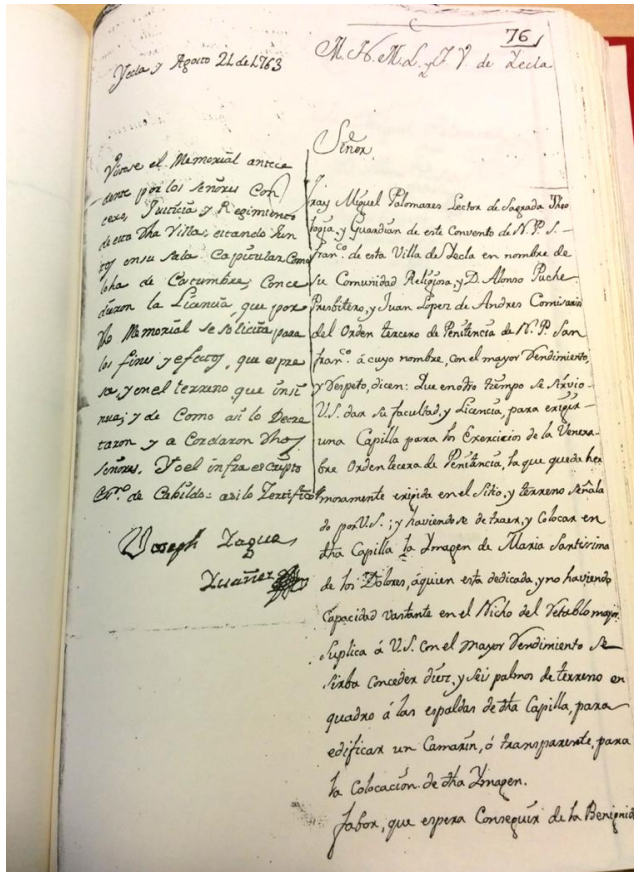 76
Yecla y Agosto 21 de 1763
M. N. M. L. y F. V. de Yecla
Vistose el Memorial antece
dente por los señores Con
cexo, Justicia y Regimiento
de esta dha Villa, estando Jun
tos en su sala Capitular Como
lo ha de Costumbre; Conce
dieron la Licencia, que por
dho Memorial se solicita para
los fines y efectos, que espre
sa, y en el terreno que insi
nua; y de Como asi lo Decre
taron y a Cordaron dhos
señores. Yo el infraescripto
Essno. de Cabildo = asi lo Zertifico
Joseph Zagua
Yuañez
Señor
Fray Miguel Palomares Lector de Sagrada Theo
logia, y Guardian de este Convento de N. P. S.
Franco. de esta Villa de Yecla en nombre de
su Comunidad Religiosa, y D. Alonso Puche
Presbitero, y Juan Lopez de Andres Comisario
del Orden tercero de Penitencia de N. P. San
Franco. á cuyo nombre, con el mayor Rendimiento,
y Respeto, dicen: Que en otro tiempo se sirvio
V.S. dar su facultad, y Licencia, para exigir
una Capilla para los Exercicios de la Venera-
bre Orden tecera de Penitencia, la que queda her
mosamente erigida en el Sitio, y terreno señala
do por V.S.; y haviendose de traer, y Colocar en
dha Capilla la Ymagen de Maria Santissima
de los Dolores, aquien esta dedicada, y no haviendo
Capacidad vastante en el Nicho del Retablo mayor.
Suplica á V.S. con el mayor Rendimiento se
sirba Conceder diez, y seis palmos de terreno en
quadro á las espaldas de dha Capilla, para
edificar un Camarin, ó transparente, para
la Colocacion de dha Ymagen.
Fabor, que espera Conseguir de la Benignid